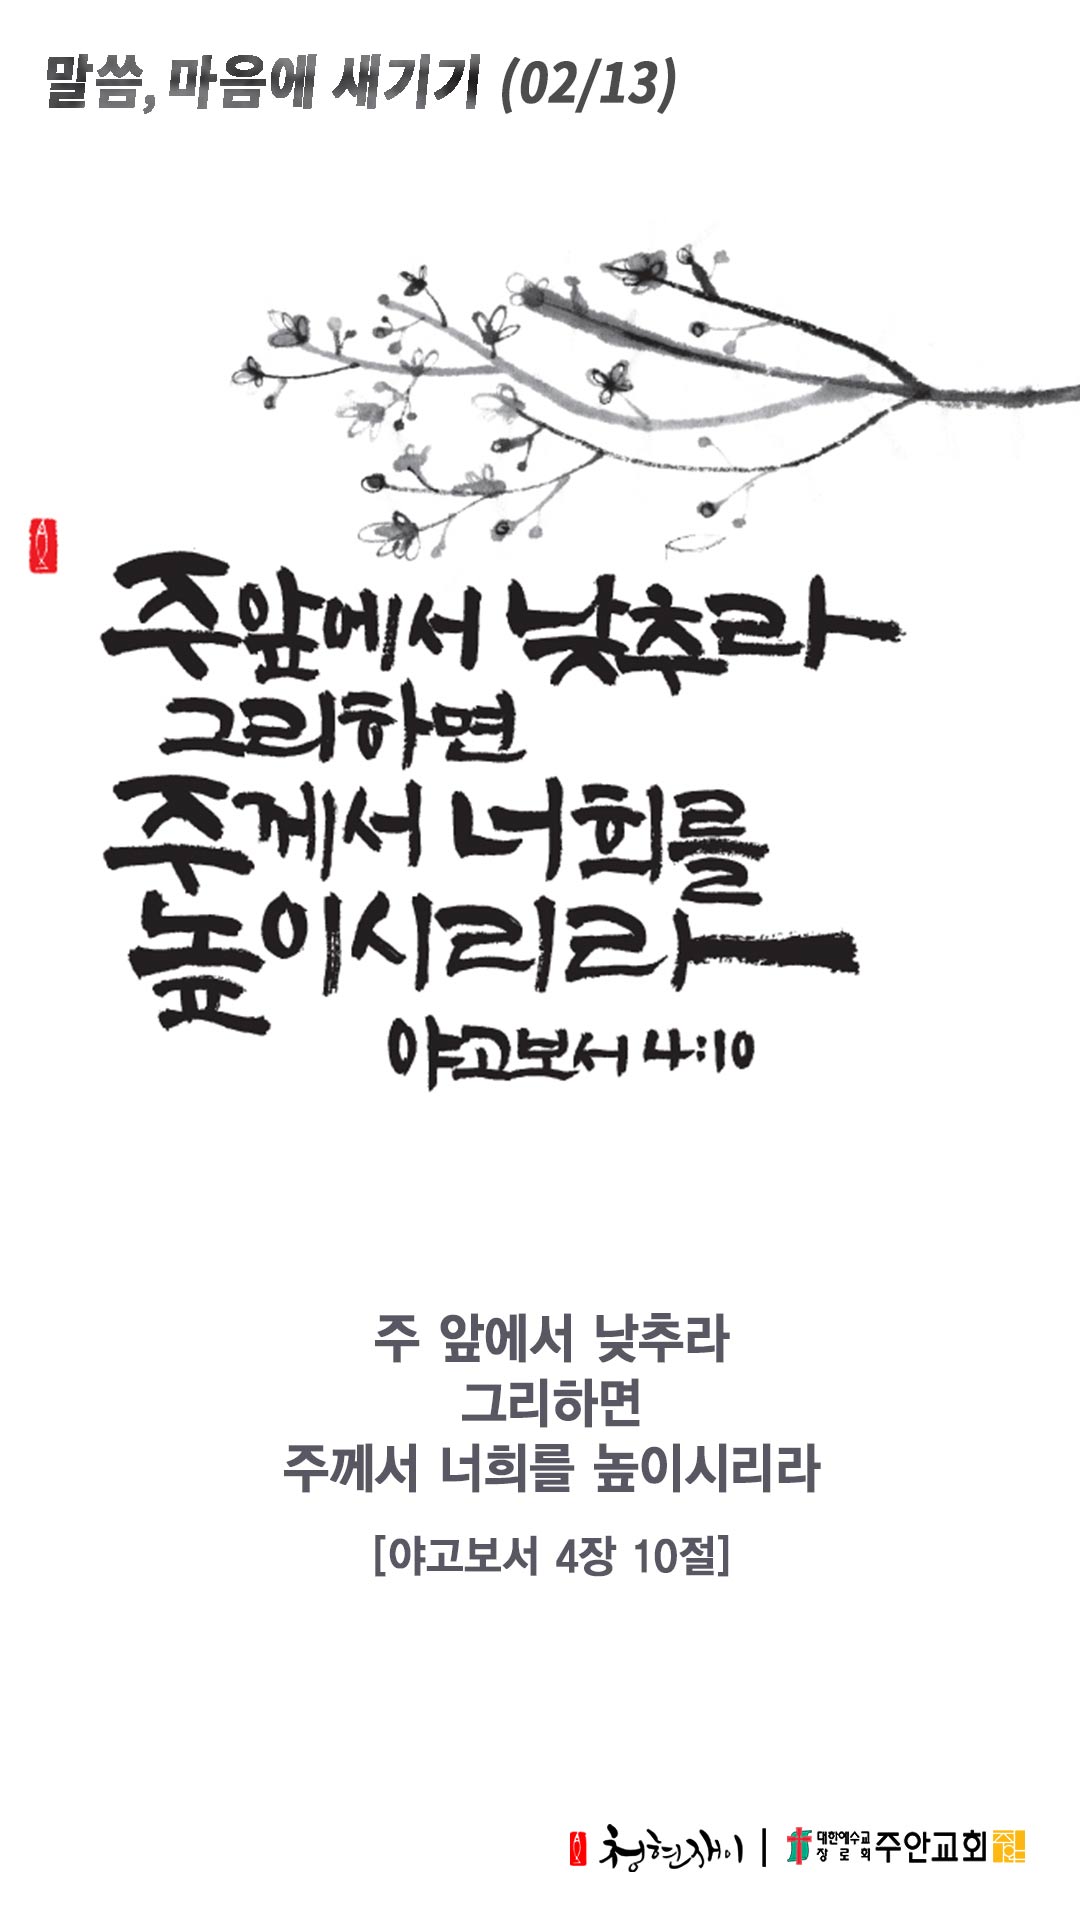 말씀, 마음에 새기기 (02/13)
주앞에서 낮추라
그리하면
주께서 너희를
높이시리라
야고보서 4:10
주 앞에서 낮추라
그리하면
주께서 너희를 높이시리라
[야고보서 4장 10절]
청현재이 | 대한예수교 장로회 주안교회